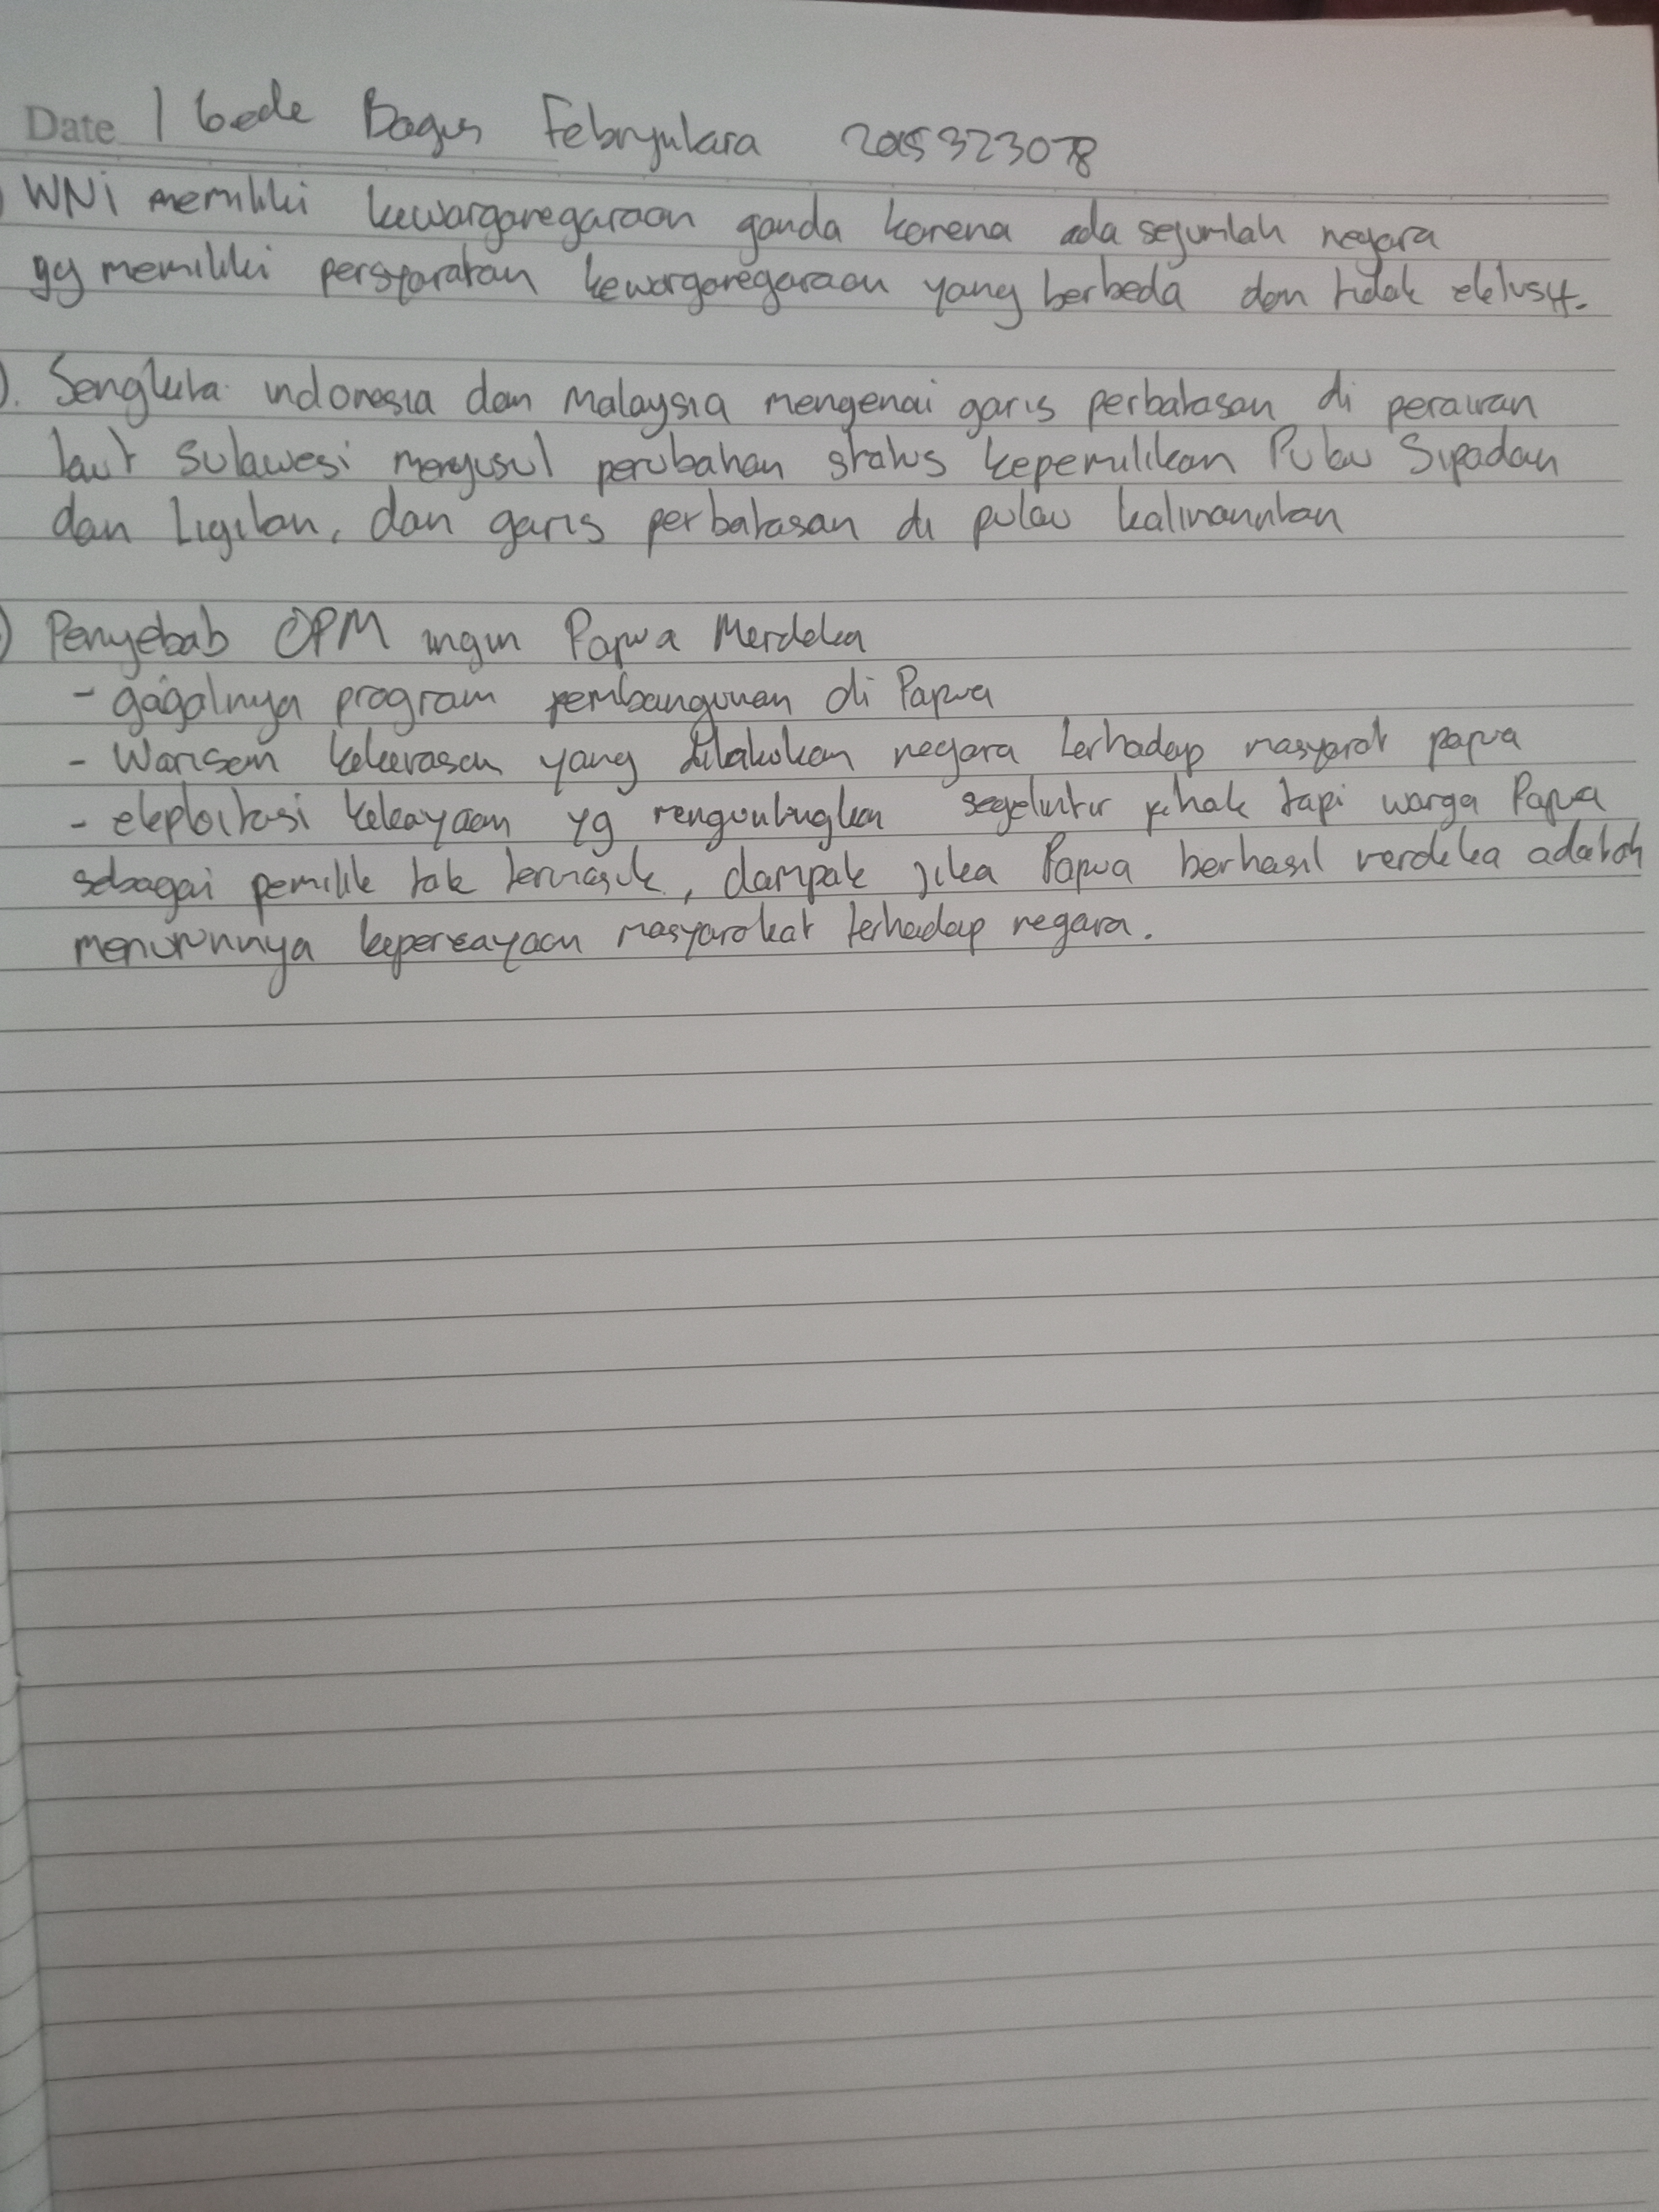 Date I Gede Bagus Febryukara 2015323078
) WNI memiliki kewarganegaraan ganda karena ada sejumlah negara
yg memiliki persyaratan kewarganegaraan yang berbeda dan tidak eklusif.
). Sengketa indonesia dan Malaysia mengenai garis perbatasan di perairan
laut Sulawesi menyusul perubahan status kepemilikan Pulau Sipadan
dan Ligitan, dan garis perbatasan di pulau kalimanntan
) Penyebab OPM ingin Papua Merdeka
- gagalnya program pembangunan di Papua
- Warisan kekerasan yang dilakukan negara terhadap masyarat papua
- ekploitasi kekayaan yg menguntungkan segelintir pihak tapi warga Papua
sebagai pemilik tak termasuk, dampak jika Papua berhasil merdeka adalah
menurunnya kepercayaan masyarakat terhadap negara.